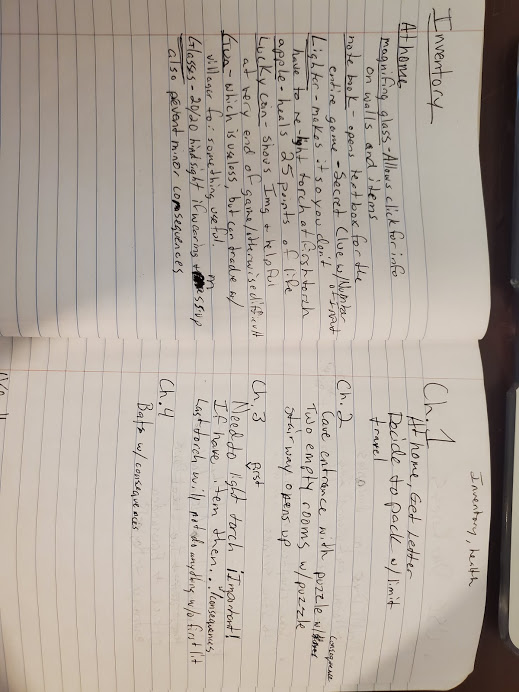 Inventory
At home
magnifing glass - Allows click for info
on walls and items
note book - opens textbox for the
entire game - Secret Clue w/ Number
Lighter - makes it so you don't
have to re-light torch at first torch
apple - heals 25 points of life
Lucky coin - shows Img + helpful
at very end of game/otherwise difficult
Gun - which is useless, but can trade w/
villager for something useful.
Glasses - 20/20 hindsight if wearing + mess up
also prevent minor consequences
Inventory, health
Ch. 1
At home, Get Letter
Decide to pack w/ limit
travel
Ch. 2
Cave entrance with puzzle w/ consequence
Two empty rooms w/ puzzle
stairway opens up
Ch. 3
Need to light first torch ! Important!
If have item then... /consequences
Last torch will not do anything w/o first lit
Ch. 4
Bats w/ consequences